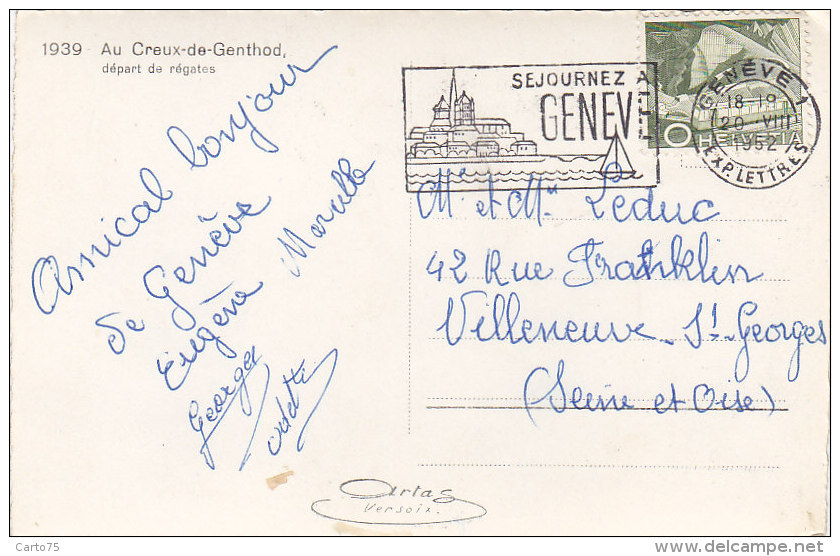 1939 Au Creux-de-Genthod,
départ de régates
SEJOURNEZ A
GENEVE
GENÈVE 1
18-19
20 VIII
1952
EXP. LETTRES
HELVETIA
Amical bonjour
de Genève
Eugène Marcelle
Georges
Odette
Mr et Mme Leduc
42 Rue Franklin
Villeneuve St Georges
(Seine et Oise)
Artas
Versoix.
Carto75
delcampe.net